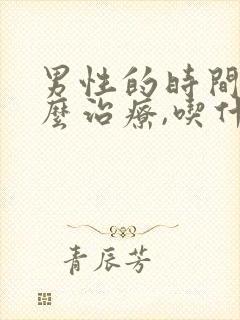 男性的時間
麼治療,喫什
青辰芳